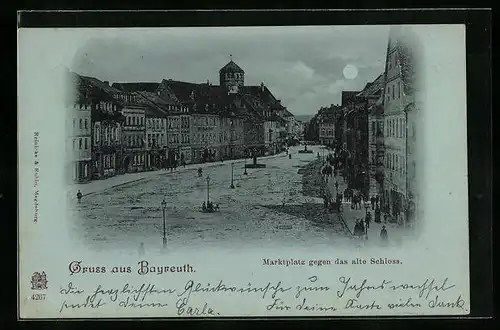 Reinicke & Rubin, Magdeburg.
Marktplatz gegen das alte Schloss.
Gruss aus Bayreuth.
4207
Die herzlichsten Glückwünsche zum Jahreswechsel
sendet Deine Carla. Für Deine Karte vielen Dank!